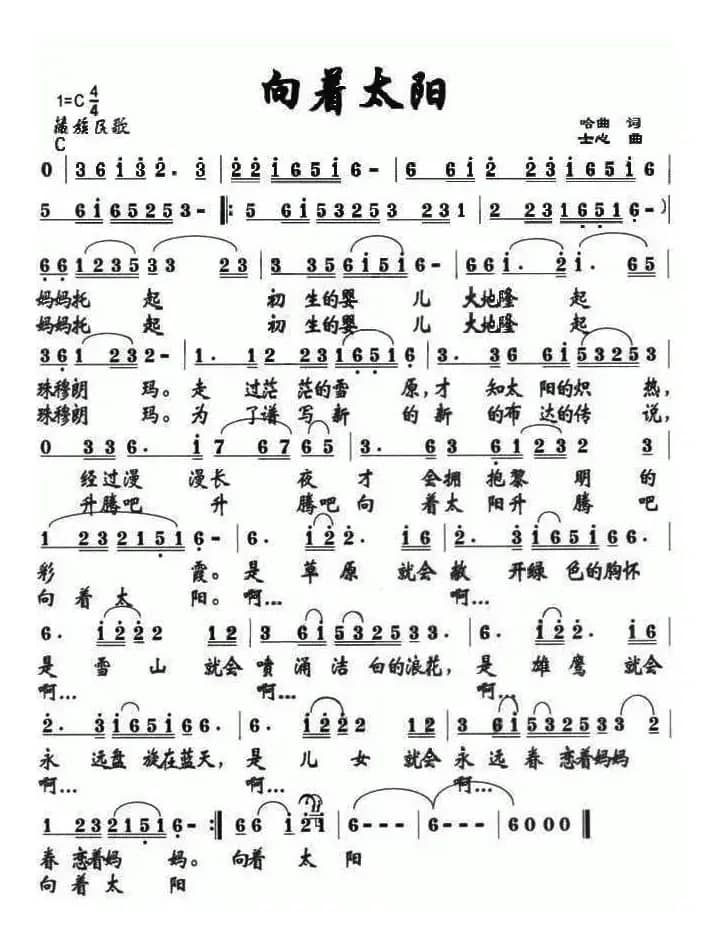 向着太阳
1=C 4/4
藏族民歌
哈曲 词
C
士心 曲
0 | 3 6 i 3 2. 3 | 2 2 i 6 5 i 6 - | 6 6 i 2 2 3 i 6 5 i 6 |
5 6 i 6 5 2 5 3 - ‖: 5 6 i 5 3 2 5 3 2 3 1 | 2 2 3 1 6 5 1 6 - ) |
6 6 1 2 3 5 3 3 2 3 | 3 3 5 6 i 5 i 6 - | 6 6 i. 2 i. 6 5 |
妈妈托 起 初 生的婴 儿 大地隆 起
妈妈托 起 初 生的婴 儿 大地隆 起
3 6 1 2 3 2 - | 1. 1 2 2 3 1 6 5 1 6 | 3. 3 6 6 i 5 3 2 5 3 |
珠穆朗 玛。走 过茫 茫的雪 原,才 知太 阳的炽 热,
珠穆朗 玛。为 了谱 写新 的 新 的布 达的传 说,
0 3 3 6. i | 7 6 7 6 5 6 | 3. 6 3 6 1 | 2 3 2 2 3 |
经过漫 漫长 夜 才 会拥 抱黎 明 的
升腾吧 升 腾吧向 着太 阳升 腾 吧
1 2 3 2 1 5 1 6 - | 6. i 2 2. i 6 | 2. 3 i 6 5 i 6 6. |
彩 霞。是 草原 就会 敞 开绿 色的胸怀
向 着 太 阳。啊... 啊...
6. i 2 2 2 1 2 | 3 6 i 5 3 2 5 3 3. | 6. i 2 2. i 6 |
是 雪 山 就会 喷 涌 洁 白的浪花, 是 雄鹰 就会
啊... 啊... 啊...
2. 3 i 6 5 i 6 6. | 6. i 2 2 2 1 2 | 3 6 i 5 3 2 5 3 3 2 |
永 远盘 旋在蓝天, 是 儿 女 就会 永 远 眷 恋着妈妈
啊... 啊... 啊...
1 2 3 2 1 5 1 6 - :‖ 6 6 i 2 i | 6 - - - | 6 - - | 6 0 0 0 ‖
眷 恋着妈 妈。 向着 太 阳
向着 太 阳